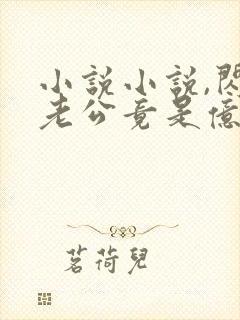 小說小說,閃
老公竟是億
茗荷兒